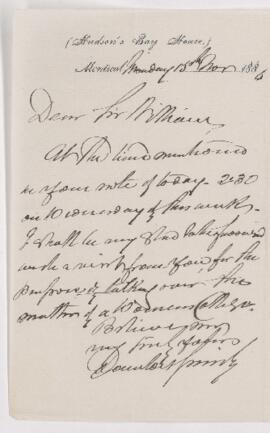 (Hudson's Bay House,)
Montreal, Monday 15th Nov 1886
Dear Sir William,
At the time mentioned
in your note of today - 2.30
on Wednesday of this week,
I shall be very glad to be favoured
with a visit from you for the
purpose of talking over the
matter of a Women's College.
Believe me
very truly yours
Donald A Smith